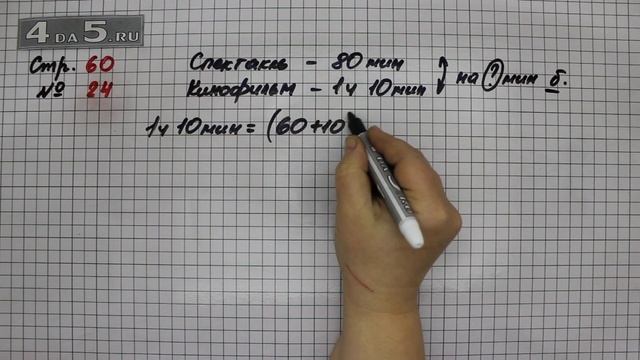 4 DA 5.RU
Стр. 60 Спектакль - 80 мин
№ 24 Кинофильм - 1ч 10мин на ? мин б.
1ч 10мин = (60+10